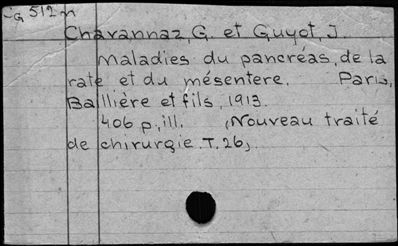 G 512 m
Chavannaz, G. et Guyot, J.
Maladies du pancréas, de la
rate et du mésentere. Paris,
Baillière et fils, 1913.
406 p., ill. (Nouveau traité
de chirurgie. T. 26).